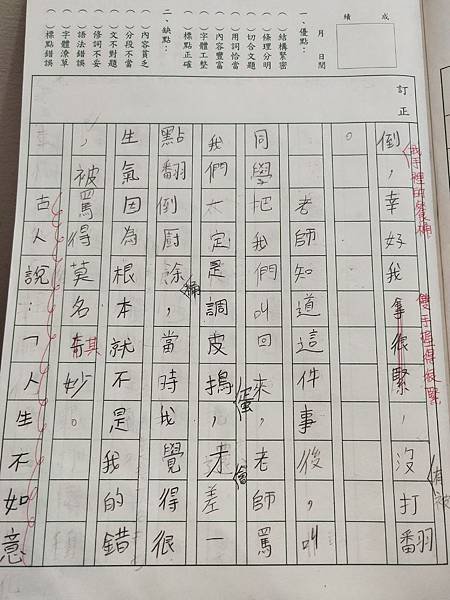 成績
月 日 間
一、優點：
（ ）結構緊密
（ ）條理分明
（ ）切合文題
（ ）用詞恰當
（ ）內容豐富
（ ）字體工整
（ ）標點正確
二、缺點：
（ ）內容貧乏
（ ）分段不當
（ ）文不對題
（ ）修詞不妥
（ ）語法錯誤
（ ）字體潦草
（ ）標點錯誤
訂正
倒，幸好我拿很緊，沒打翻
我手裡的餐桶
雙手握得很緊
有被
。
老師知道這件事後，叫
同學把我們叫回來，老師罵
我們太定是調皮搗蛋，未差一
點翻倒廚涂，當時我覺得很
生氣因為根本就不是我的錯
，被罵得莫名其妙。
古人說：「人生不如意